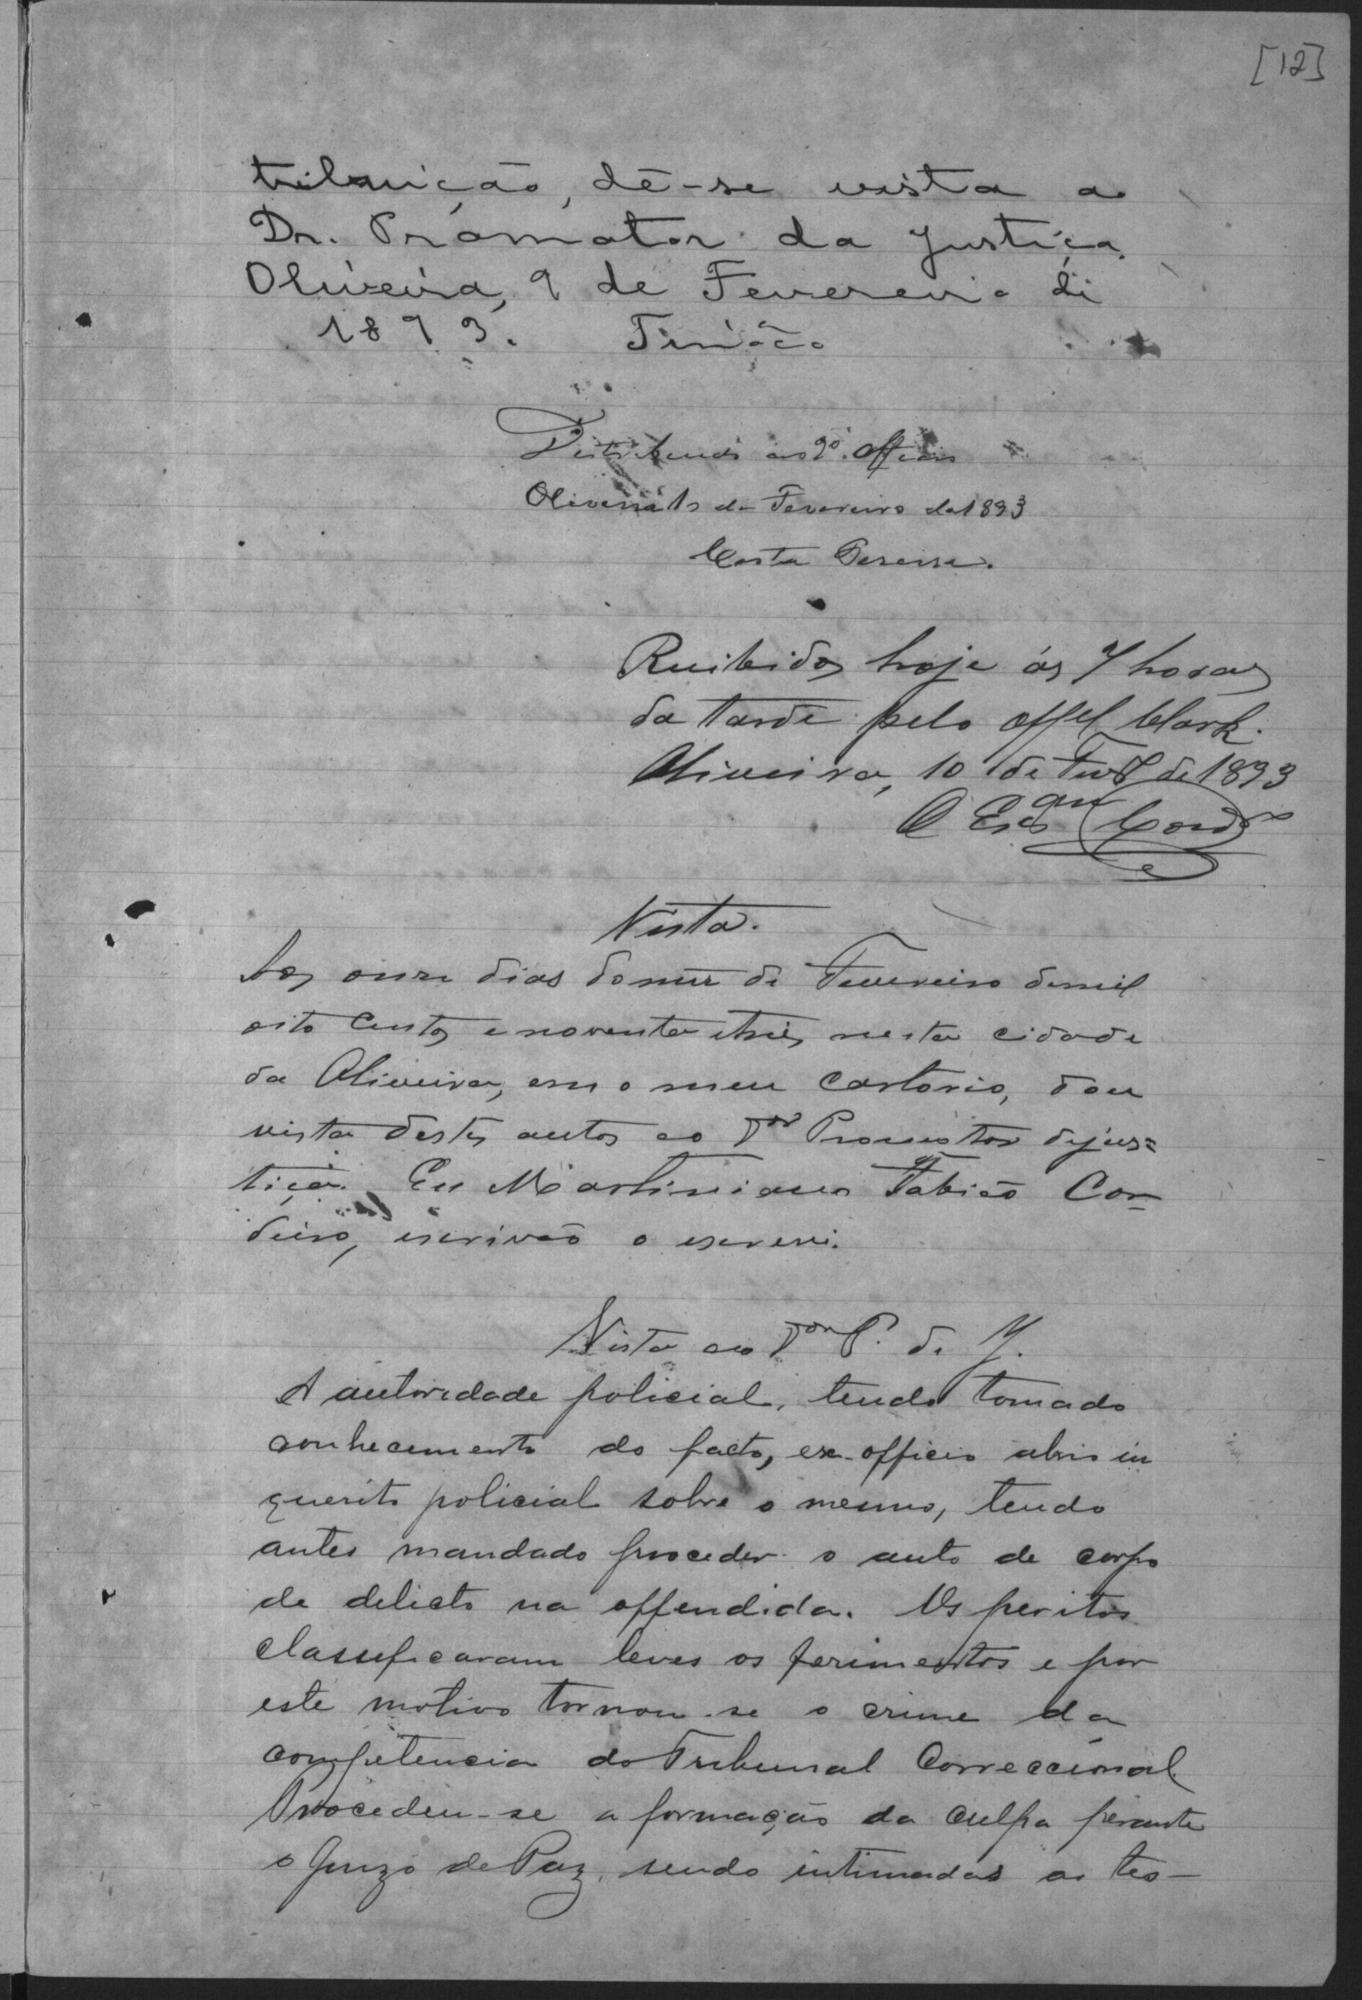 [12]
tribuição, dê-se vista ao
Dr. Promotor da Justiça.
Oliveira, 9 de Fevereiro de
1893.
Distribuido ao 2º. Officio
Oliveira 10 de Fevereiro de 1893
Costa Pereira.
Recibidos hoje ás 7 horas
da tarde pelo Offel Clark.
Oliveira, 10 de Fevº de 1893
O Escam Cordº
Vista.
Aos onze dias do mez de Fevereiro de mil
oito centos e noventa e tres, nesta cidade
da Oliveira, em o meu cartorio, dou
vista destes autos ao Dor Promotor de jus=
tiça. Eu Martiniano Fabião Cor-
deiro, escrivão o escrevi.
Vista ao Dor P. de J.
A autoridade policial, tendo tomado
conhecimento do facto, ex-officio abrio in
querito policial sobre o mesmo, tendo
antes mandado proceder o auto de corpo
de delicto na offendida. Os peritos
classificaram leves os ferimentos e por
este motivo tornou-se o crime da
competencia do Tribunal Correccional
Procedeu-se a formação da culpa perante
o Juizo de Paz, sendo intimadas as tes-